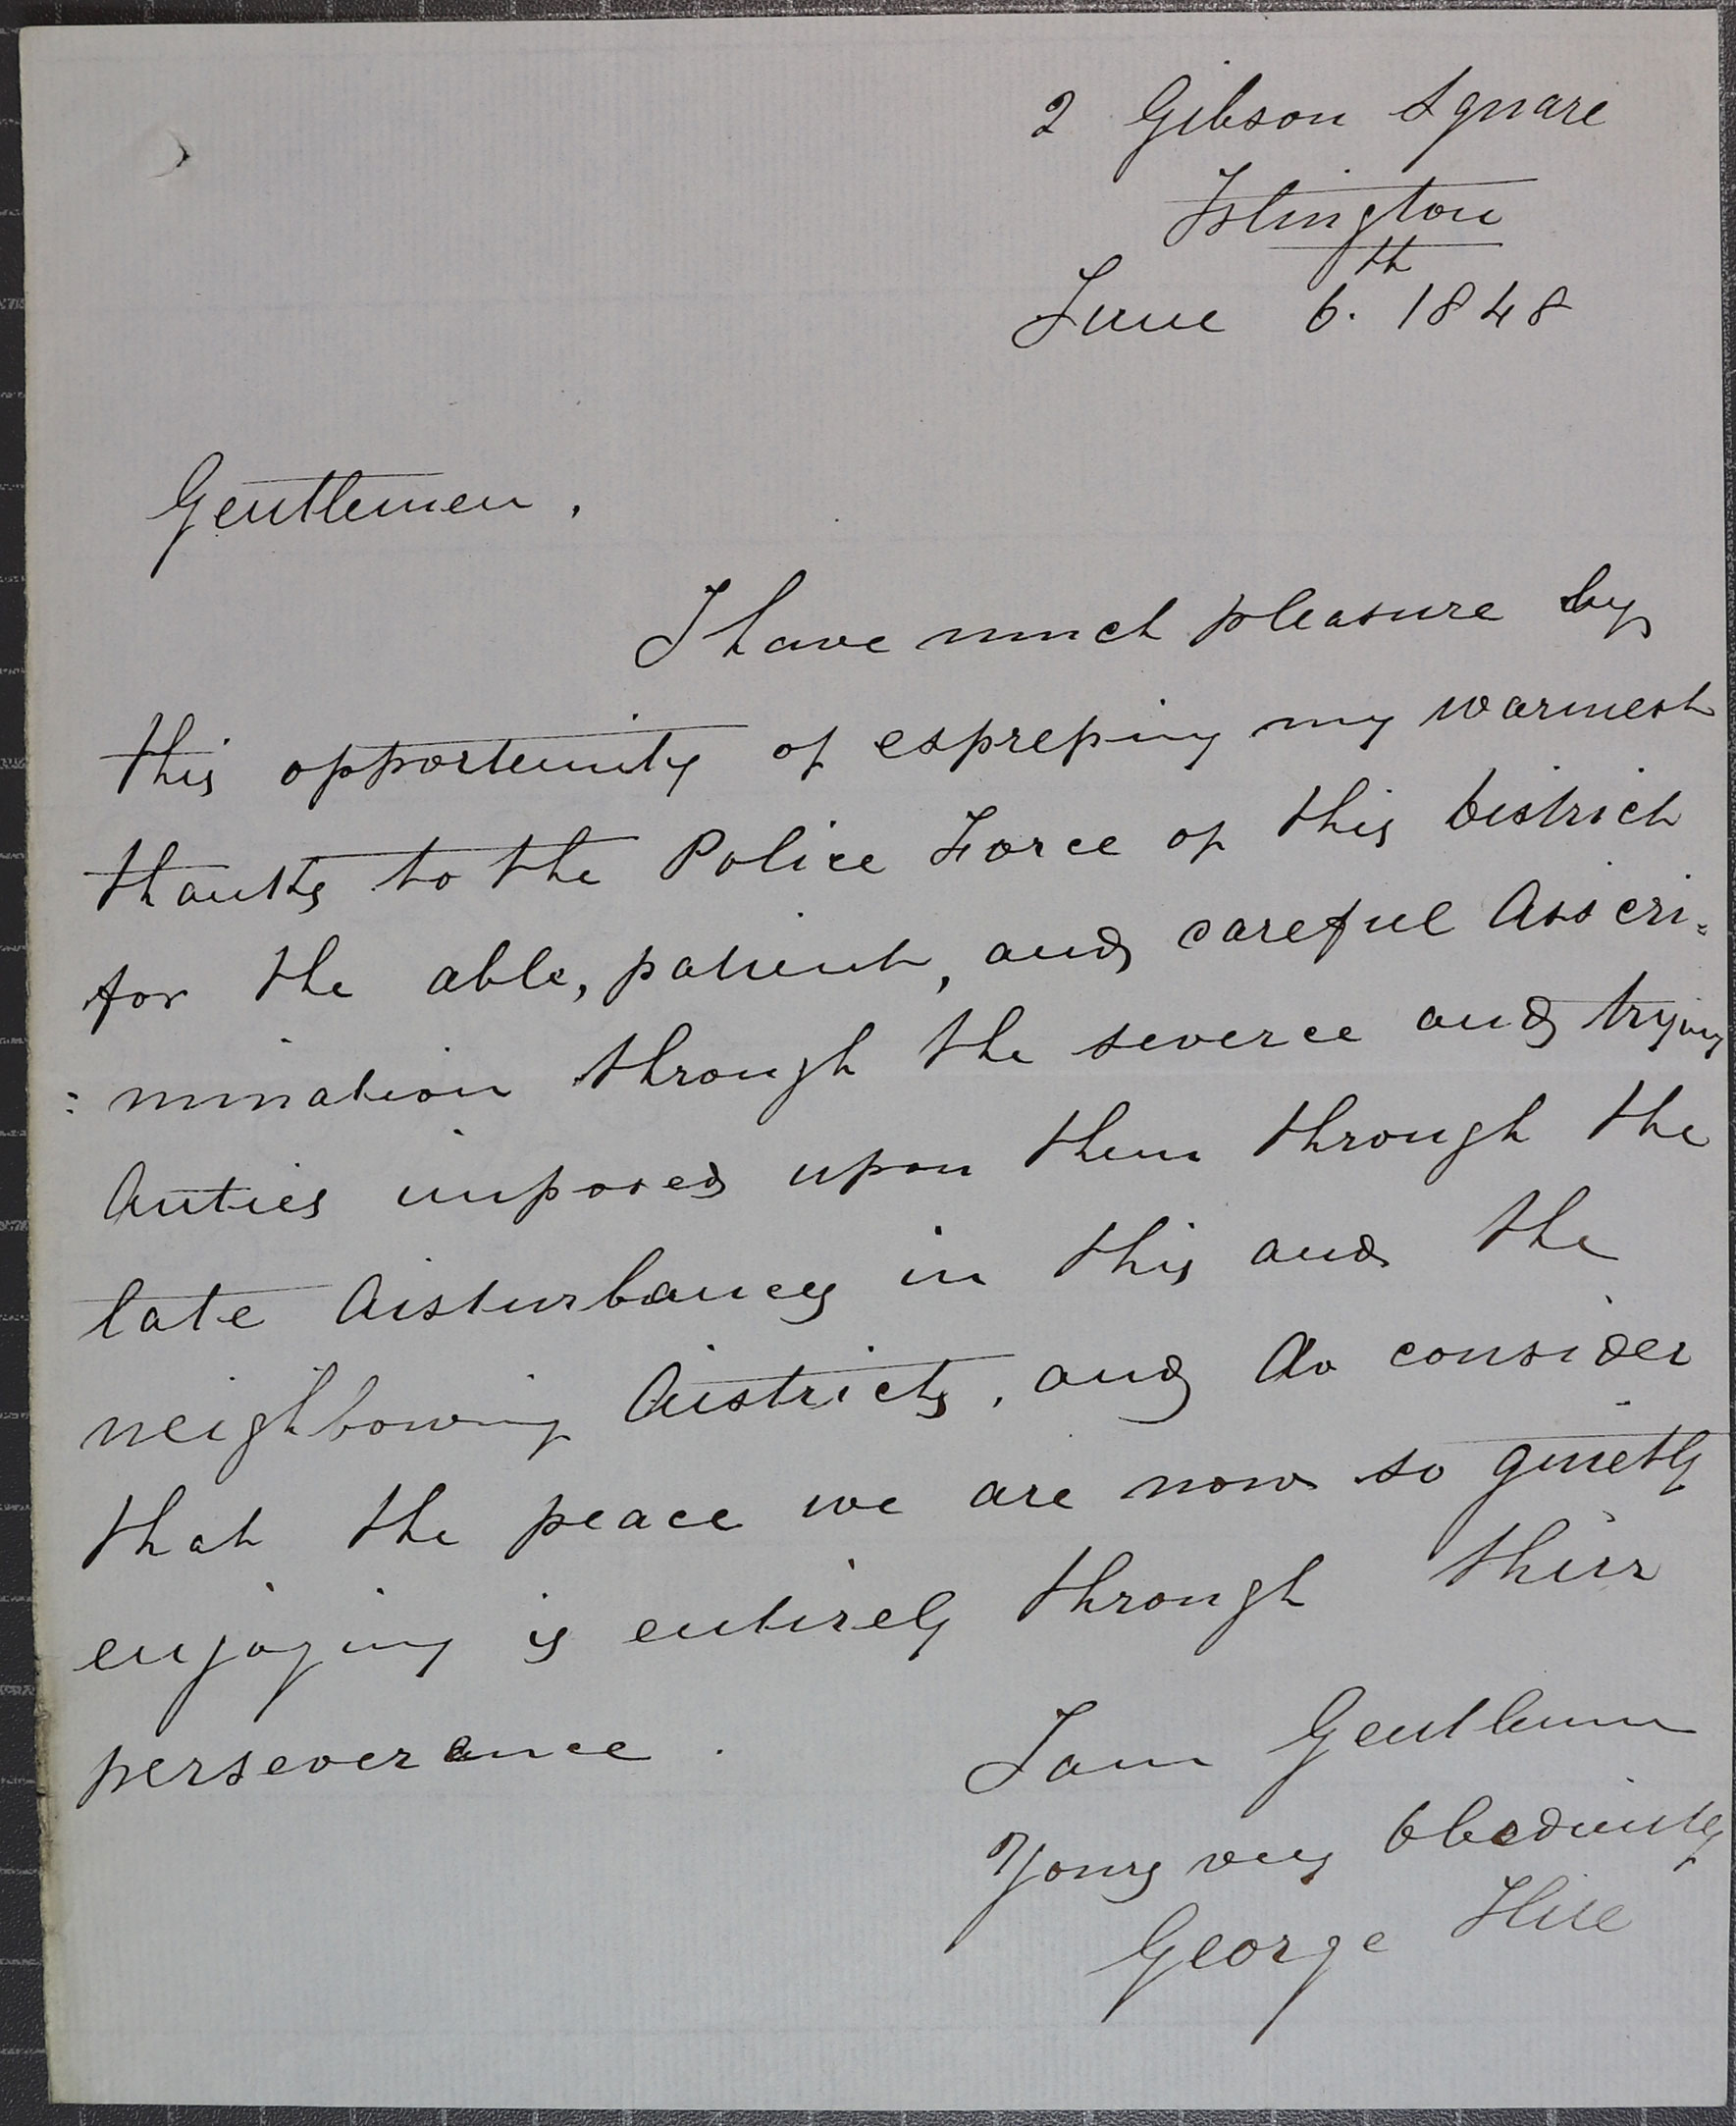 2 Gibson Square
Islington
June 6th. 1848
Gentlemen,
I have much pleasure by
this opportunity of expressing my warmest
thanks to the Police Force of this District
for the able, patient, and careful discri-
:mination through the severe and trying
duties imposed upon them through the
late disturbances in this and the
neighbouring districts, and do consider
that the peace we are now so quietly
enjoying is entirely through their
perseverance.
I am Gentlemen
Yours very obediently
George Hill